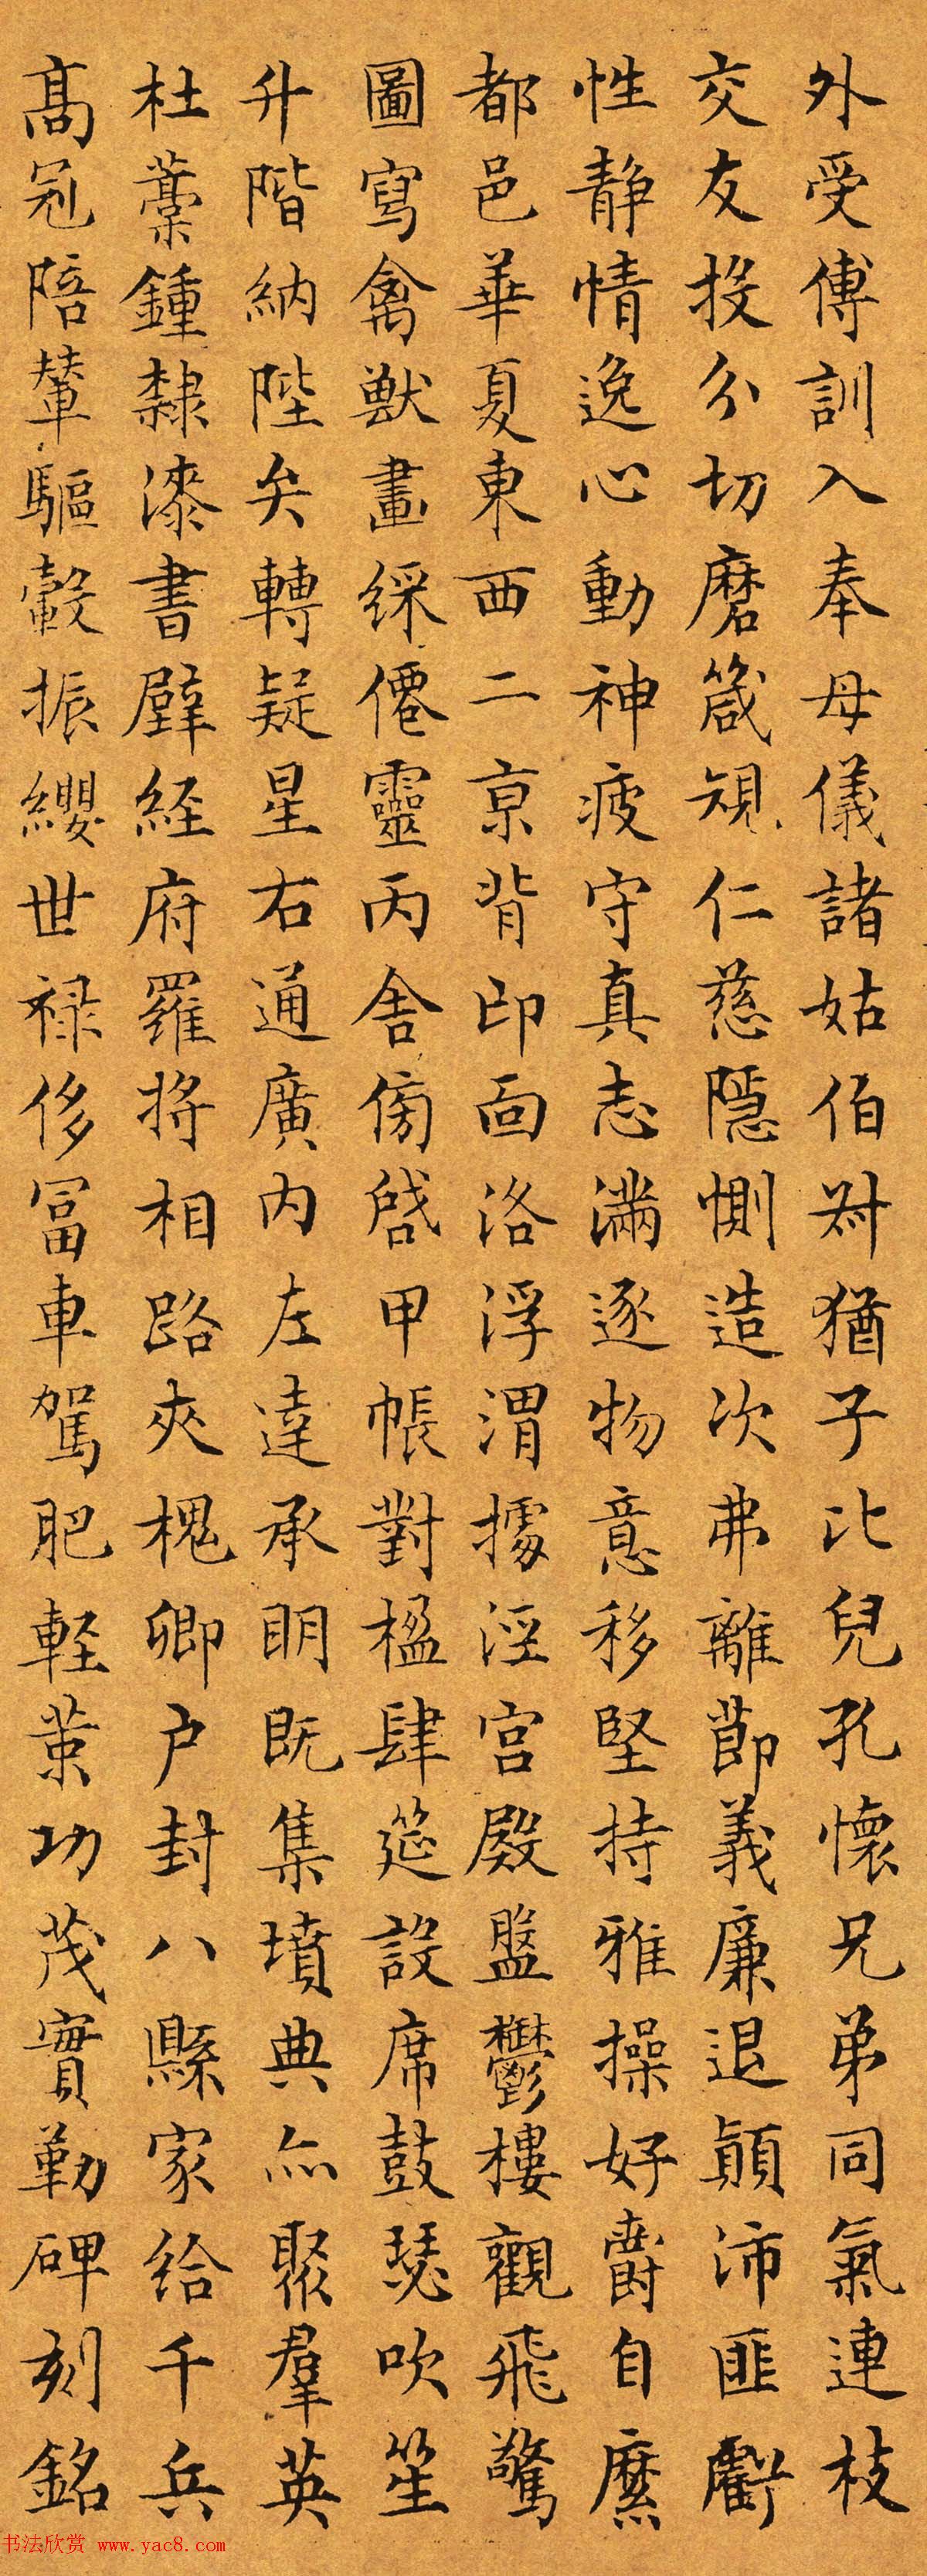 外受傅訓入奉母儀諸姑伯叔猶子比兒孔懷兄弟同氣連枝
交友投分切磨箴規仁慈隱惻造次弗離節義廉退顛沛匪虧
性靜情逸心動神疲守真志滿逐物意移堅持雅操好爵自縻
都邑華夏東西二京背邙面洛浮渭據涇宮殿盤鬱樓觀飛驚
圖寫禽獸畫綵僊靈丙舍傍啟甲帳對楹肆筵設席鼓瑟吹笙
升階納陛弁轉疑星右通廣內左達承明既集墳典亦聚羣英
杜藁鍾隸漆書壁經府羅將相路夾槐卿户封八縣家給千兵
高冠陪輦驅轂振纓世禄侈富車駕肥輕策功茂實勒碑刻銘
书法欣赏 www.yac8.com